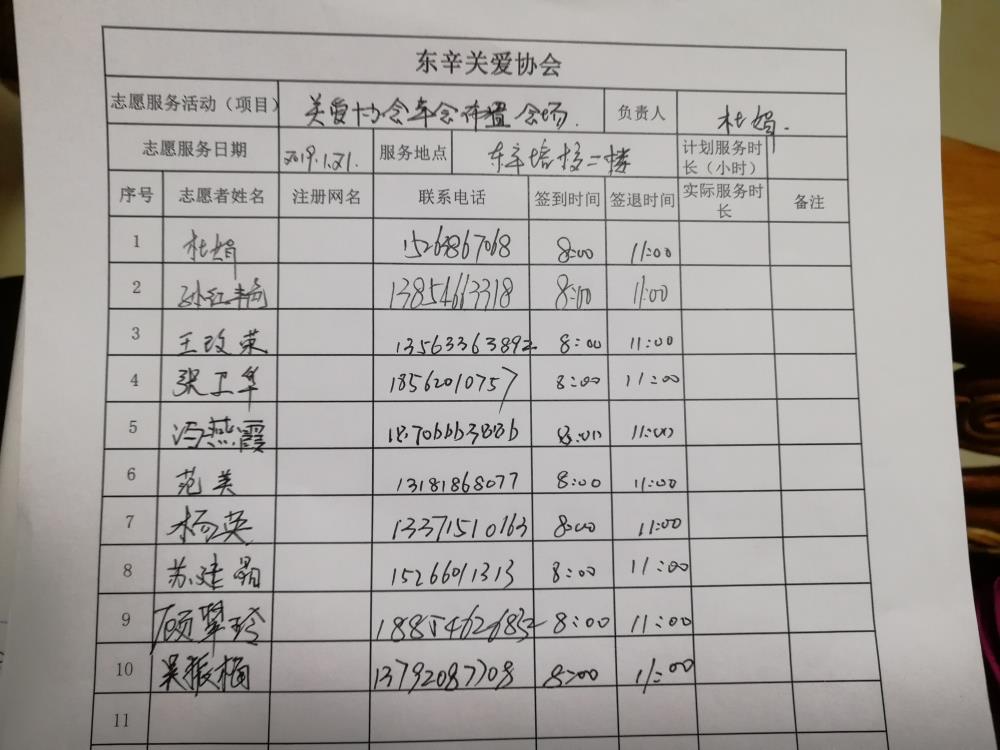 东辛关爱协会
志愿服务活动（项目） 关爱协会年会布置会场. 负责人 杜娟.
志愿服务日期 2019.1.21. 服务地点 东辛培校二楼 计划服务时长（小时）
序号 志愿者姓名 注册网名 联系电话 签到时间 签退时间 实际服务时长 备注
1 杜娟 15263867068 8:00 11:00
2 孙红艳 13854663318 8:00 11:00
3 王改荣 13563363892 8:00 11:00
4 张卫华 18562010757 8:00 11:00
5 冯燕霞 8:00 11:00
6 范美 13181868077 8:00 11:00
7 杨英 13371510163 8:00 11:00
8 苏建 15266011313 8:00 11:00
9 顾翠玲 18854626832 8:00 11:00
10 吴振 13792087708 8:00 11:00
11